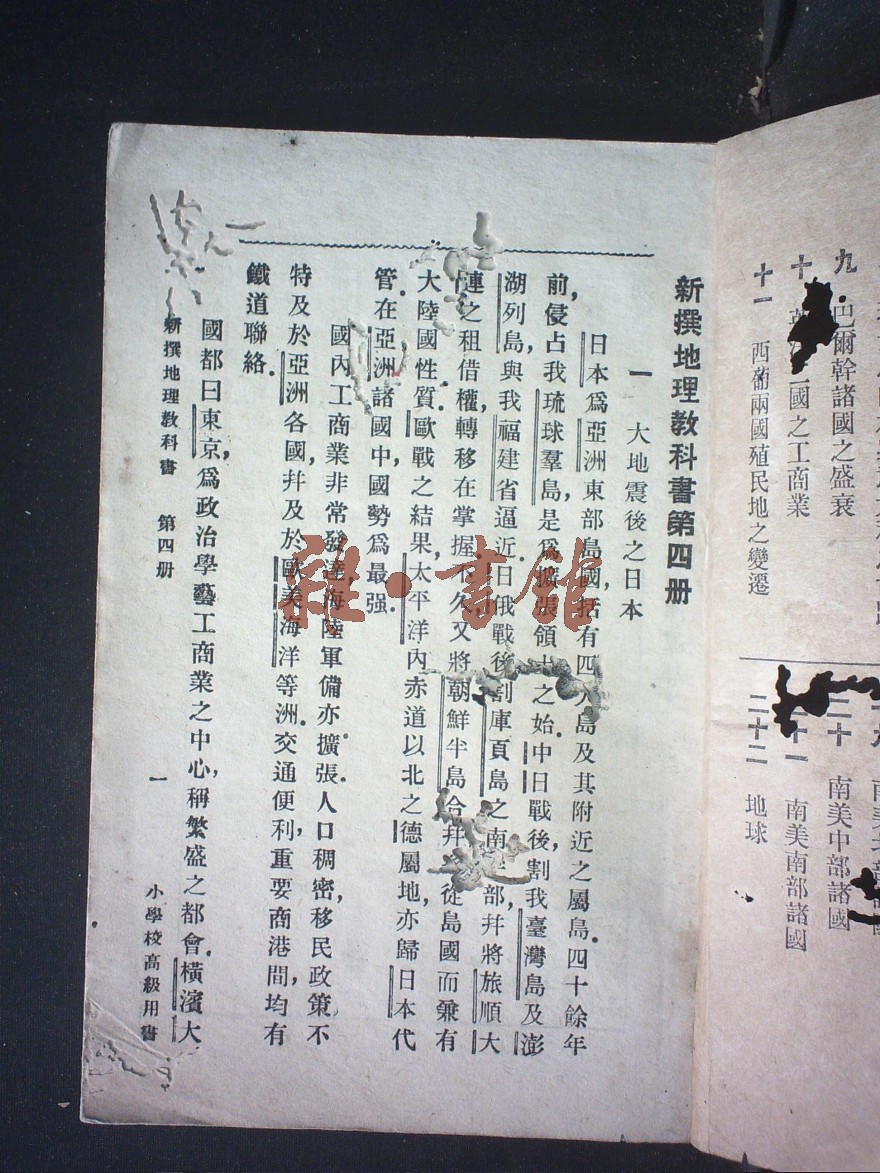 九 巴爾幹諸國之盛衰
十 國之工商業
十一 西葡兩國殖民地之變遷
二十 南美中部諸國
十一 南美南部諸國
二十二 地球
新撰地理教科書第四册
一 大地震後之日本
日本爲亞洲東部島國，括有四大島及其附近之屬島。四十餘年
前，侵占我琉球羣島，是爲擴張領土之始。中日戰後，割我臺灣島及澎
湖列島，與我福建省逼近。日俄戰後，割庫頁島之南部，幷將旅順大
連之租借權，轉移在掌握。不久，又將朝鮮半島合幷，從島國而兼有
大陸國性質。歐戰之結果，太平洋內赤道以北之德屬地，亦歸日本代
管。在亞洲諸國中，國勢爲最强。
國內工商業非常發達，海陸軍備亦擴張。人口稠密，移民政策，不
特及於亞洲各國，幷及於歐美海洋等洲。交通便利，重要商港間，均有
鐵道聯絡。
國都曰東京，爲政治學藝工商業之中心，稱繁盛之都會。橫濱大
新撰地理教科書 第四册 一 小學校高級用書
雜·書館